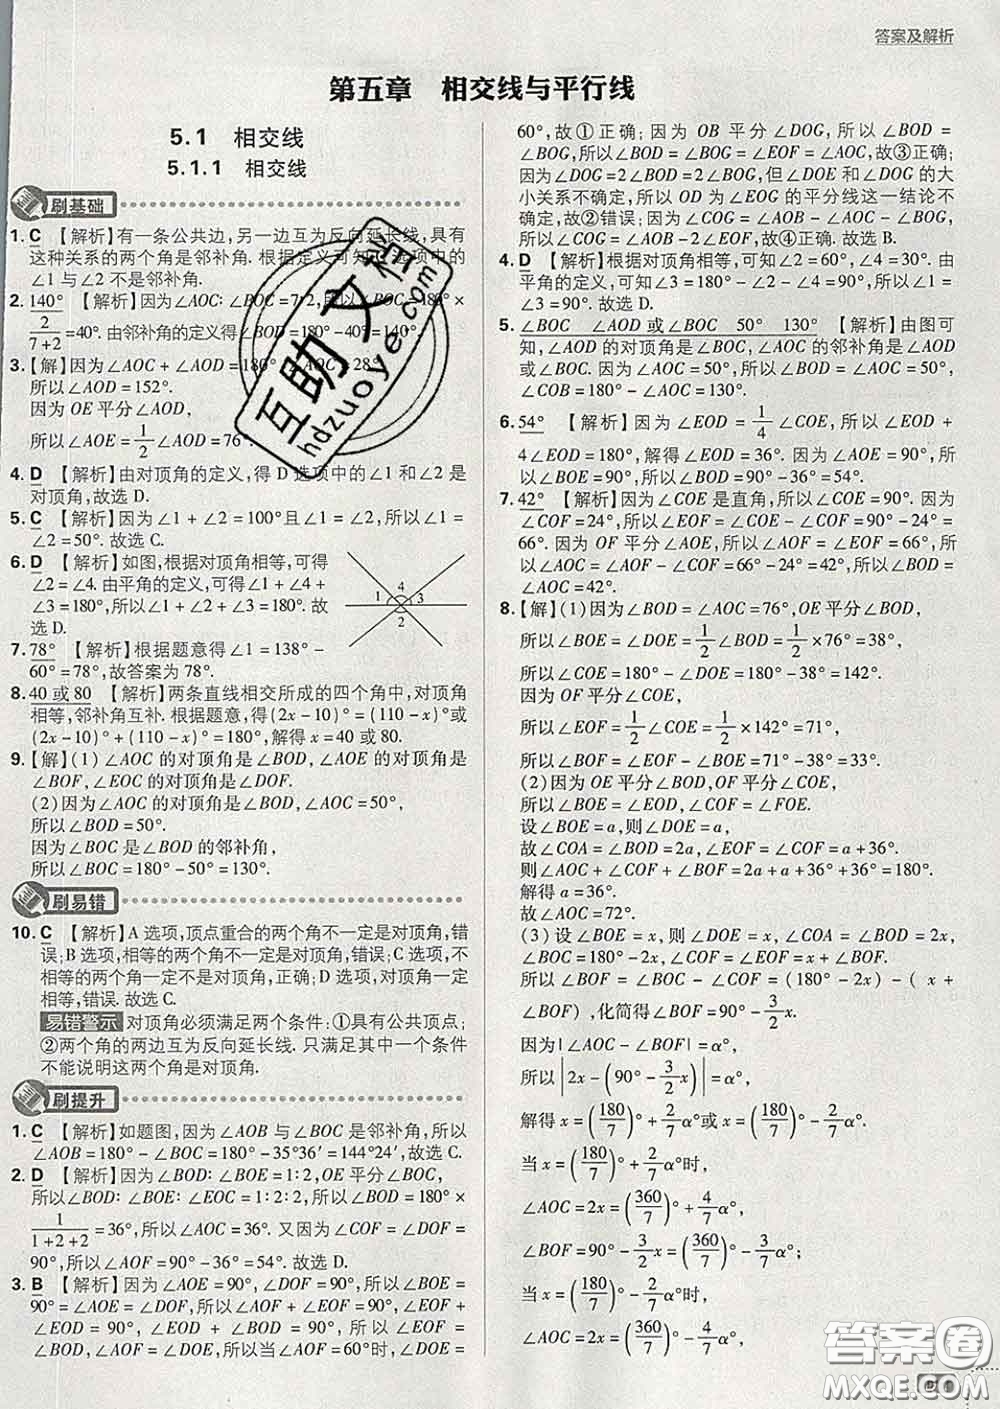 答案及解析
第五章 相交线与平行线
5.1 相交线
5.1.1 相交线
刷基础
1. C 【解析】有一条公共边,另一边互为反向延长线,具有
这种关系的两个角是邻补角. 根据定义可知C选项中的
∠1与∠2不是邻补角.
2. 140° 【解析】因为∠AOC∶∠BOC=7∶2,所以∠BOC=180°×
2/(7+2)=40°. 由邻补角的定义得∠BOD=180°-40°=140°.
3. 【解】因为∠AOC+∠AOD=180°,∠AOC=28°,
所以∠AOD=152°.
因为OE平分∠AOD,
所以∠AOE=1/2∠AOD=76°.
4. D 【解析】由对顶角的定义,得D选项中的∠1和∠2是
对顶角,故选D.
5. C 【解析】因为∠1+∠2=100°且∠1=∠2,所以∠1=
∠2=50°. 故选C.
6. D 【解析】如图,根据对顶角相等,可得
∠2=∠4. 由平角的定义,可得∠1+∠4+
∠3=180°,所以∠1+∠2+∠3=180°. 故
选D.
1 4 3 2
7. 78° 【解析】根据题意可得∠1=138°-
60°=78°,故答案为78°.
8. 40或80 【解析】两条直线相交所成的四个角中,对顶角
相等,邻补角互补. 根据题意,得(2x-10)°=(110-x)°或
(2x-10)°+(110-x)°=180°,解得x=40或80.
9. 【解】(1)∠AOC的对顶角是∠BOD,∠AOE的对顶角是
∠BOF,∠EOC的对顶角是∠DOF.
(2)因为∠AOC的对顶角是∠BOD,∠AOC=50°,
所以∠BOD=50°.
因为∠BOC是∠BOD的邻补角,
所以∠BOC=180°-50°=130°.
刷易错
10. C 【解析】A选项,顶点重合的两个角不一定是对顶角,错
误;B选项,相等的两个角不一定是对顶角,错误;C选项,不
相等的两个角一定不是对顶角,正确;D选项,对顶角一定
相等,错误. 故选C.
易错警示 对顶角必须满足两个条件:①具有公共顶点;
②两个角的两边互为反向延长线. 只满足其中一个条件
不能说明这两个角是对顶角.
刷提升
1. C 【解析】如题图,因为∠AOB与∠BOC是邻补角,所以
∠AOB=180°-∠BOC=180°-35°36′=144°24′,故选C.
2. D 【解析】因为∠BOD∶∠BOE=1∶2,OE平分∠BOC,
所以∠BOD∶∠BOE∶∠EOC=1∶2∶2,所以∠BOD=180°×
1/(1+2+2)=36°,所以∠AOC=36°. 又因为∠COF=∠DOF=
90°,所以∠AOF=90°-36°=54°. 故选D.
3. B 【解析】因为∠AOE=90°,∠DOF=90°,所以∠BOE=
90°=∠AOE=∠DOF,所以∠AOF+∠EOF=90°,∠EOF+
∠EOD=90°,∠EOD+∠BOD=90°,所以∠EOF=∠BOD,∠AOF=
∠DOE,所以当∠AOF=60°时,∠DOE=
60°,故①正确;因为OB平分∠DOG,所以∠BOD=
∠BOG,所以∠BOD=∠BOG=∠EOF=∠AOC,故③正确;
因为∠DOG=2∠BOD=2∠BOG,但∠DOE和∠DOG的大
小关系不确定,所以OD为∠EOG的平分线这一结论不
确定,故②错误;因为∠COG=∠AOB-∠AOC-∠BOG,
所以∠COG=∠AOB-2∠EOF,故④正确. 故选B.
4. D 【解析】根据对顶角相等,可知∠2=60°,∠4=30°. 由
平角的定义,可知∠3=180°-∠2-∠4=90°,所以∠1=
∠3=90°. 故选D.
5. ∠BOC ∠AOD或∠BOC 50° 130° 【解析】由图可
知,∠AOD的对顶角是∠BOC,∠AOC的邻补角是∠AOD
或∠BOC. 因为∠AOC=50°,所以∠BOD=∠AOC=50°,
∠COB=180°-∠AOC=130°.
6. 54° 【解析】因为∠EOD=1/4∠COE,所以∠EOD+
4∠EOD=180°,解得∠EOD=36°. 因为∠AOE=90°,所以
∠BOE=90°,所以∠BOD=90°-36°=54°.
7. 42° 【解析】因为∠COE是直角,所以∠COE=90°. 因为
∠COF=24°,所以∠EOF=∠COE-∠COF=90°-24°=
66°. 因为OF平分∠AOE,所以∠AOF=∠EOF=66°,所以
∠AOC=∠AOF-∠COF=66°-24°=42°,所以∠BOD=
∠AOC=42°.
8. 【解】(1)因为∠BOD=∠AOC=76°,OE平分∠BOD,
所以∠BOE=∠DOE=1/2∠BOD=1/2×76°=38°,
所以∠COE=180°-∠DOE=180°-38°=142°.
因为OF平分∠COE,
所以∠EOF=1/2∠COE=1/2×142°=71°,
所以∠BOF=∠EOF-∠BOE=71°-38°=33°.
(2)因为OE平分∠BOD,OF平分∠COE,
所以∠BOE=∠EOD,∠COF=∠FOE.
设∠BOE=a,则∠DOE=a,
故∠COA=∠BOD=2a,∠EOF=∠COF=a+36°.
则∠AOC+∠COF+∠BOF=2a+a+36°+36°=180°.
解得a=36°.
故∠AOC=72°.
(3)设∠BOE=x,则∠DOE=x,∠COA=∠BOD=2x,
∠BOC=180°-2x,∠COF=∠EOF=x+∠BOF,
所以∠BOF=∠BOC-∠COF=(180°-2x)-(x+
∠BOF),化简得∠BOF=90°-3/2x.
因为|∠AOC-∠BOF|=α°,
所以|2x-(90°-3/2x)|=α°,
解得x=(180/7)°+2/7α°或x=(180/7)°-2/7α°.
当x=(180/7)°+2/7α°时,
∠AOC=2x=(360/7)°+4/7α°,
∠BOF=90°-3/2x=(360/7)°-3/7α°;
当x=(180/7)°-2/7α°时,
∠AOC=2x=(360/7)°-4/7α°,
互助文档
hdzuoye.com
答案圈
MXQE.COM